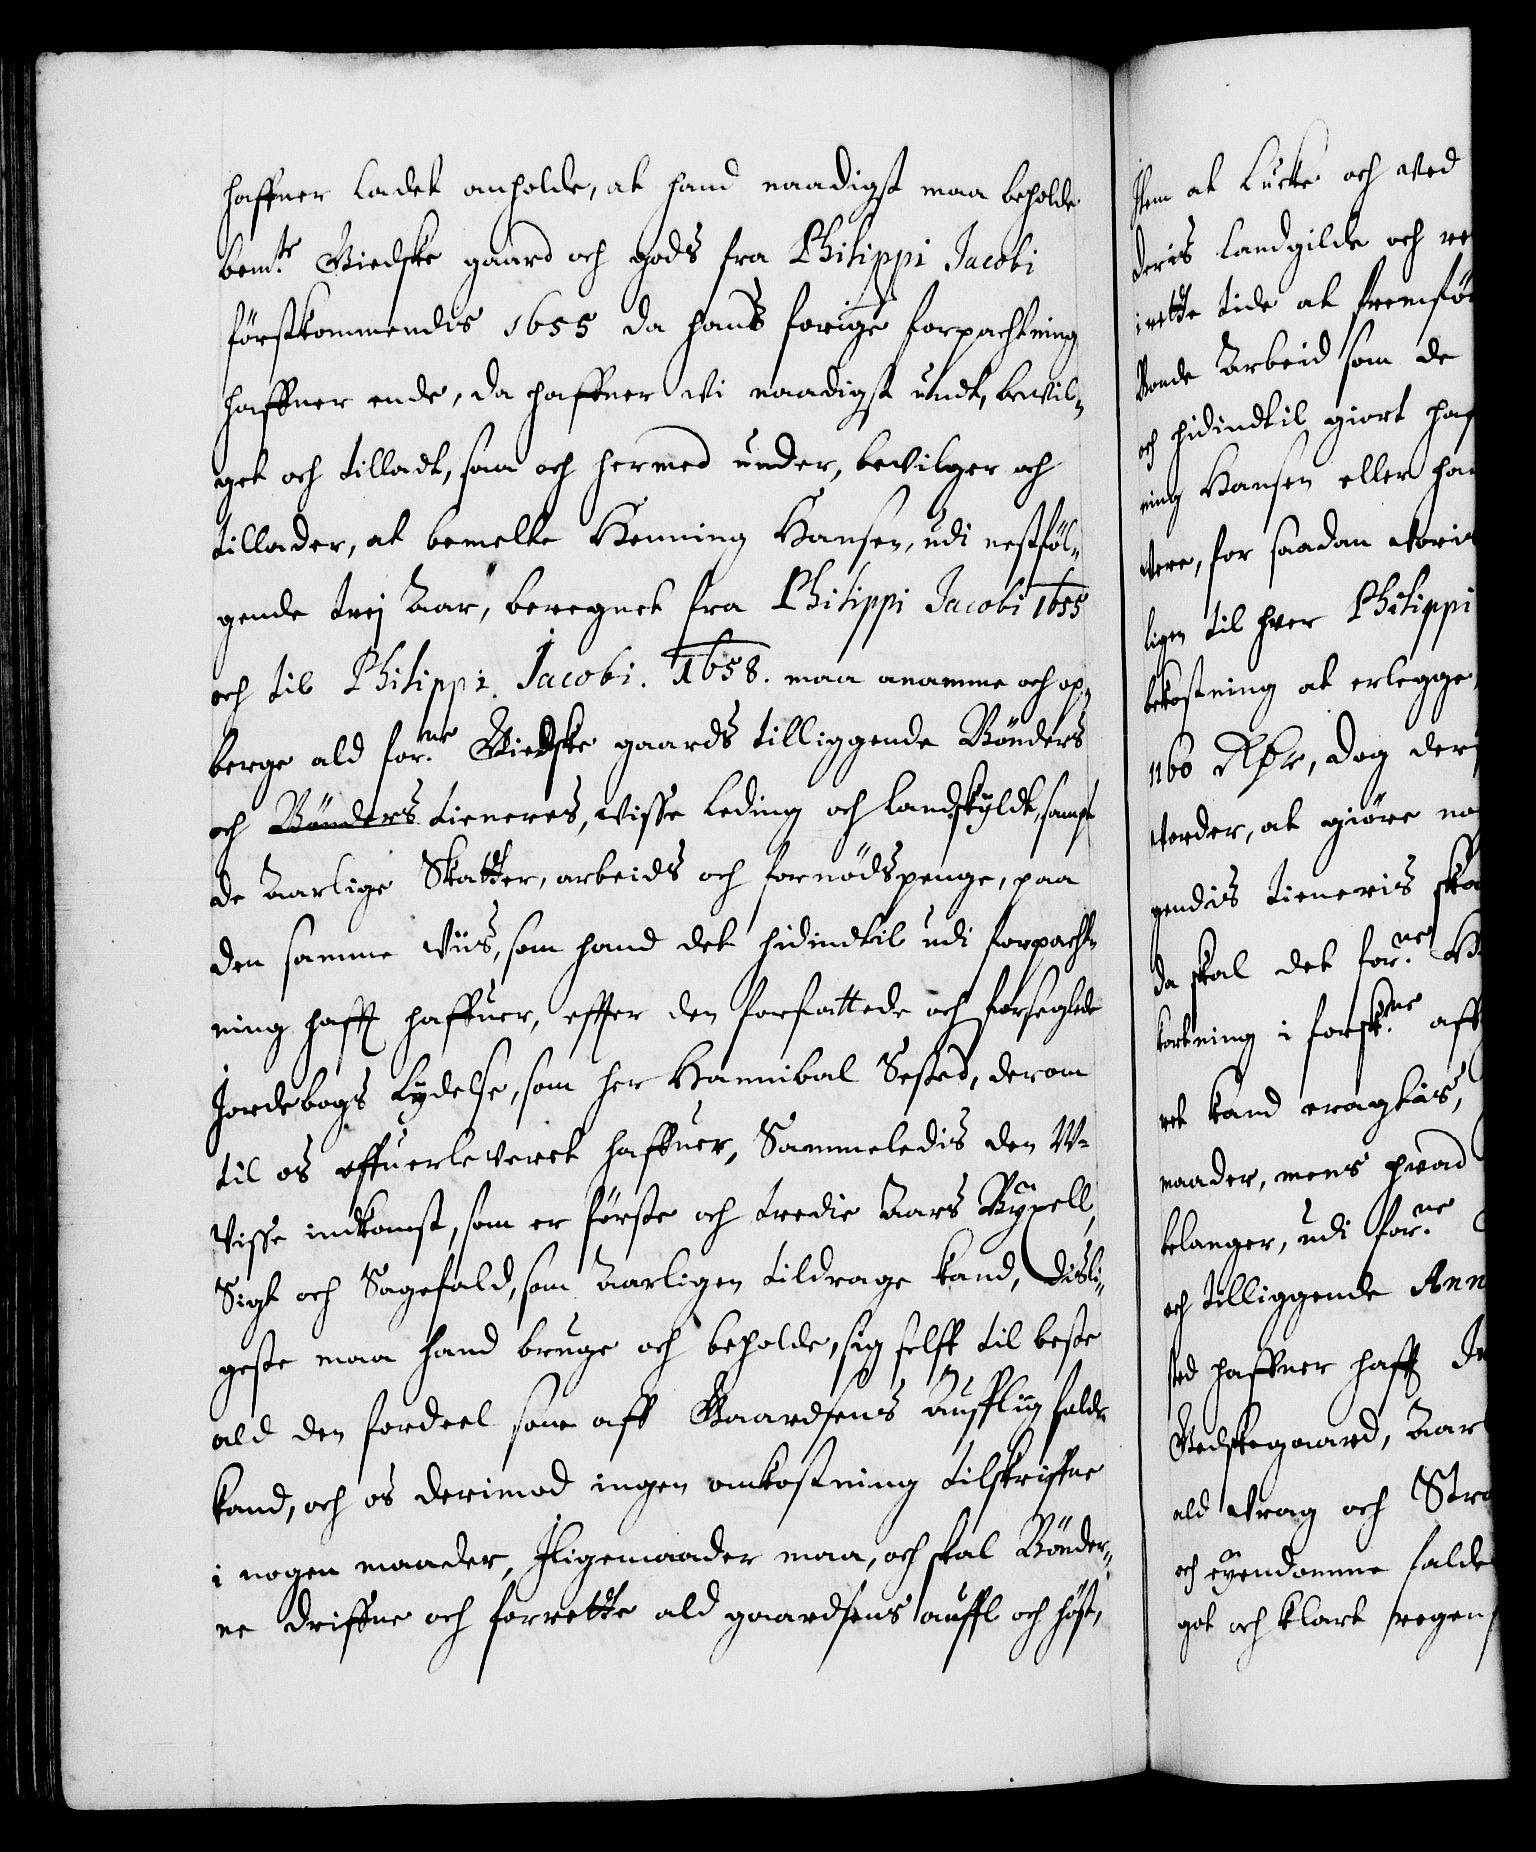 haffuer Ladet anholde, at hand naadigst maa beholde
bemte Viedske gaard och gods fra Philippi Jacobi
förstkommendis 1655 da hans forige forpachtning
haffuer ende, da haffuer wi naadigst undt, bevil-
get och tilladt, saa och hermed under, bevilger och
tillader, at bemelte Henning Hansen, udi nestföl-
gende trej Aar, beregnet fra Philippi Jacobi 1655
och til Philippi Jacobi. 1658. maa anamme och op-
berge ald forne Viedske gaards tilliggende Bönders
och Bönders tieneres, visse Leding och Landskyldt, sampt
de Aarlige Skatter, arbeids och fornödspenge, paa
den samme viis, som hand det hidindtil udi forpacht-
ning hafft haffuer, effter den forfattede och forseglede
Jordebogs Lydelse, som her Hannibal Sested, derom
til os offuerleveret haffuer, Sammeledis den W-
visse indkomst, som er förste och tredie Aars Bÿxell,
Sigt och Sagefald, som Aarligen tildrage kand, Disli-
geste maa hand bruge och beholde, sig selff til beste
ald den fordeel som aff Gaardsens Auffling falde
kand, och os derimod ingen omkostning tilskriffue
i nogen maader, Jligemaader maa, och skal Bönder-
ne driffue och forrette ald gaardsens auffl och höst,
Item at Lucke och ved
deris Landgilde och
i rette tide at fremför
Arbeid som de
och hidindtil giort haf
ning Hansen eller han
were, for saadan
ligen til hver Philippi
bekostning at erlegge,
1160 Rdr, dog der
vorder, at giöre no
gendis tieneris ska
da skal det forne
kortning i forskne aff
ret kand eragtis,
maader, mens hvad
belanger, udi forne
och tilliggende Ann
sted haffuer hafft
Vedskegaard, Aar
ald Vrag och Stra
och eÿendomme falde
got och klart regen